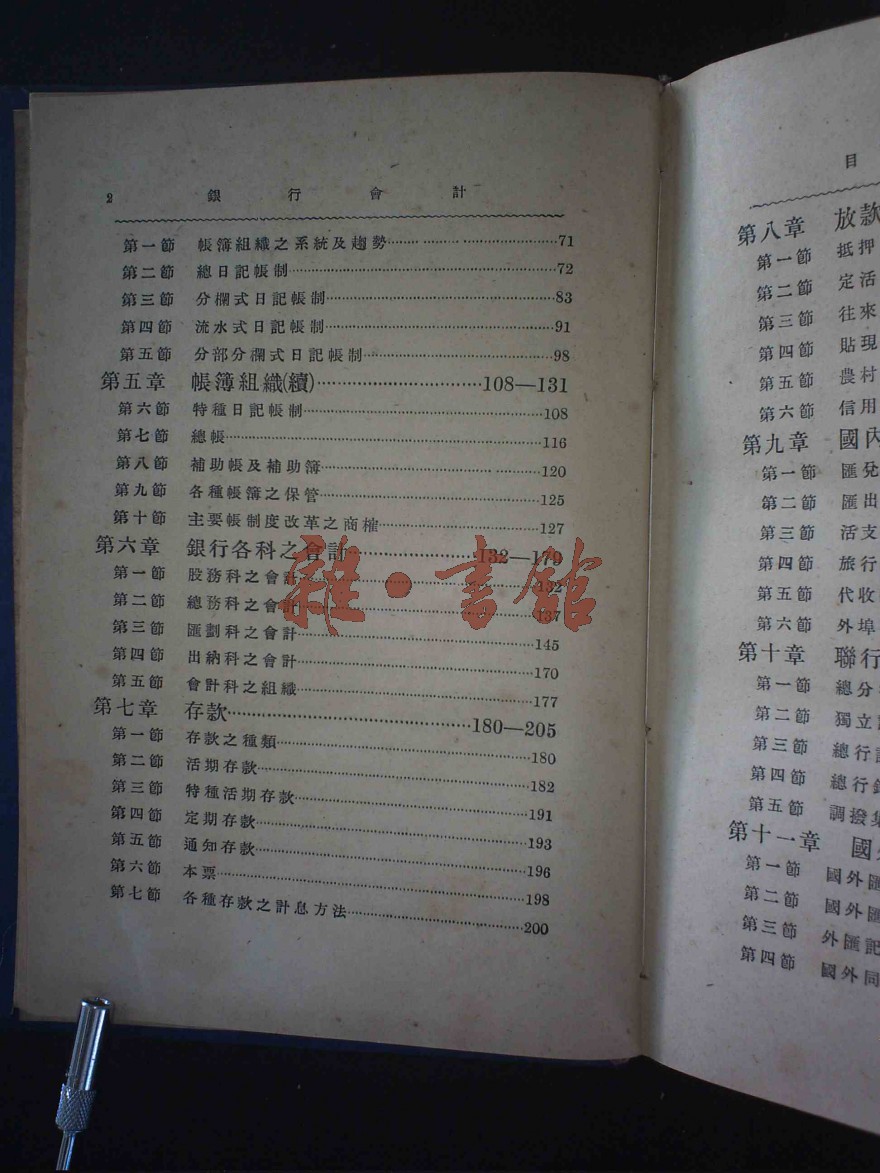 2 銀行會計
第一節 帳簿組織之系統及趨勢……………………71
第二節 總日記帳制……………………72
第三節 分欄式日記帳制……………………83
第四節 流水式日記帳制……………………91
第五節 分部分欄式日記帳制……………………98
第五章 帳簿組織(續)……………………108—131
第六節 特種日記帳制……………………108
第七節 總帳……………………116
第八節 補助帳及補助簿……………………120
第九節 各種帳簿之保管……………………125
第十節 主要帳制度改革之商榷……………………127
第六章 銀行各科之會計……………………132—179
第一節 股務科之會計……………………132
第二節 總務科之會計……………………137
第三節 匯劃科之會計……………………145
第四節 出納科之會計……………………170
第五節 會計科之組織……………………177
第七章 存款……………………180—205
第一節 存款之種類……………………180
第二節 活期存款……………………182
第三節 特種活期存款……………………191
第四節 定期存款……………………193
第五節 通知存款……………………196
第六節 本票……………………198
第七節 各種存款之計息方法……………………200
雜·書館
目
第八章 放款
第一節 抵押
第二節 定活
第三節 往來
第四節 貼現
第五節 農村
第六節 信用
第九章 國內
第一節 匯兌
第二節 匯出
第三節 活支
第四節 旅行
第五節 代收
第六節 外埠
第十章 聯行
第一節 總分
第二節 獨立
第三節 總行
第四節 總行
第五節 調撥集
第十一章 國外
第一節 國外匯
第二節 國外匯
第三節 外匯記
第四節 國外同